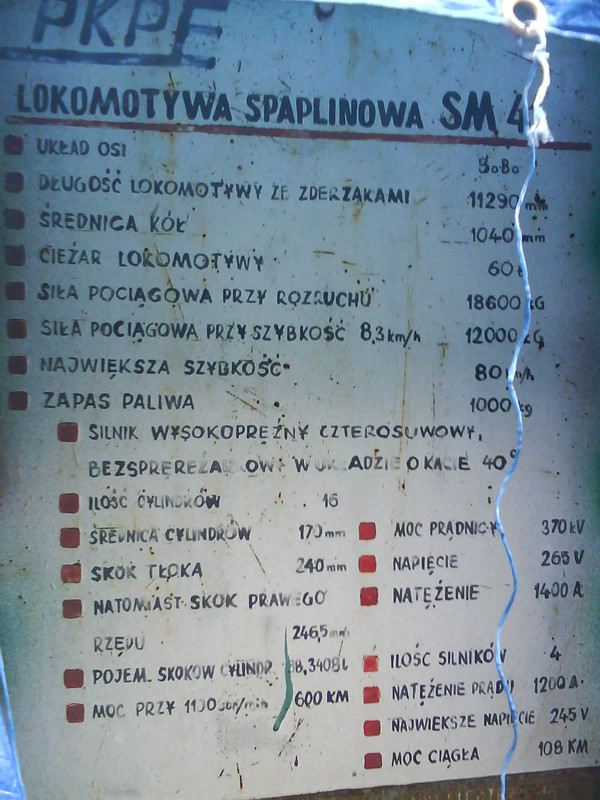 PKPE
LOKOMOTYWA SPAPLINOWA SM 4
UKŁAD OSI BoBo
DŁUGOŚĆ LOKOMOTYWY ZE ZDERZAKAMI 11290 mm
ŚREDNICA KÓŁ 1040 mm
CIEŻAR LOKOMOTYWY 60 t
SIŁA POCIĄGOWA PRZY ROZRUCHU 18600 kG
SIŁA POCIĄGOWA PRZY SZYBKOŚĆ 8,3 km/h 12000 kG
NAJWIĘKSZA SZYBKOŚĆ 80 km/h
ZAPAS PALIWA 1000 kg
SILNIK WYSOKOPREŻNY CZTEROSUWOWY,
W UKŁADZIE O KĄCIE 40°
ILOŚĆ CYLINDRÓW 16
ŚREDNICA CYLINDRÓW 170 mm MOC PRĄDNICY 370 kV
SKOK TŁOKA 240 mm NAPIĘCIE 265 V
NATOMIAST SKOK PRAWEGO NATĘŻENIE 1400 A
RZĘDU 246,5 mm
POJEM. SKOKOW CYLINDR. 88,3408 l ILOŚĆ SILNIKÓW 4
MOC PRZY 1100 obr/min 600 KM NATĘŻENIE PRĄDU 1200 A
NAJWIĘKSZE NAPIĘCIE 245 V
MOC CIĄGŁA 108 KM